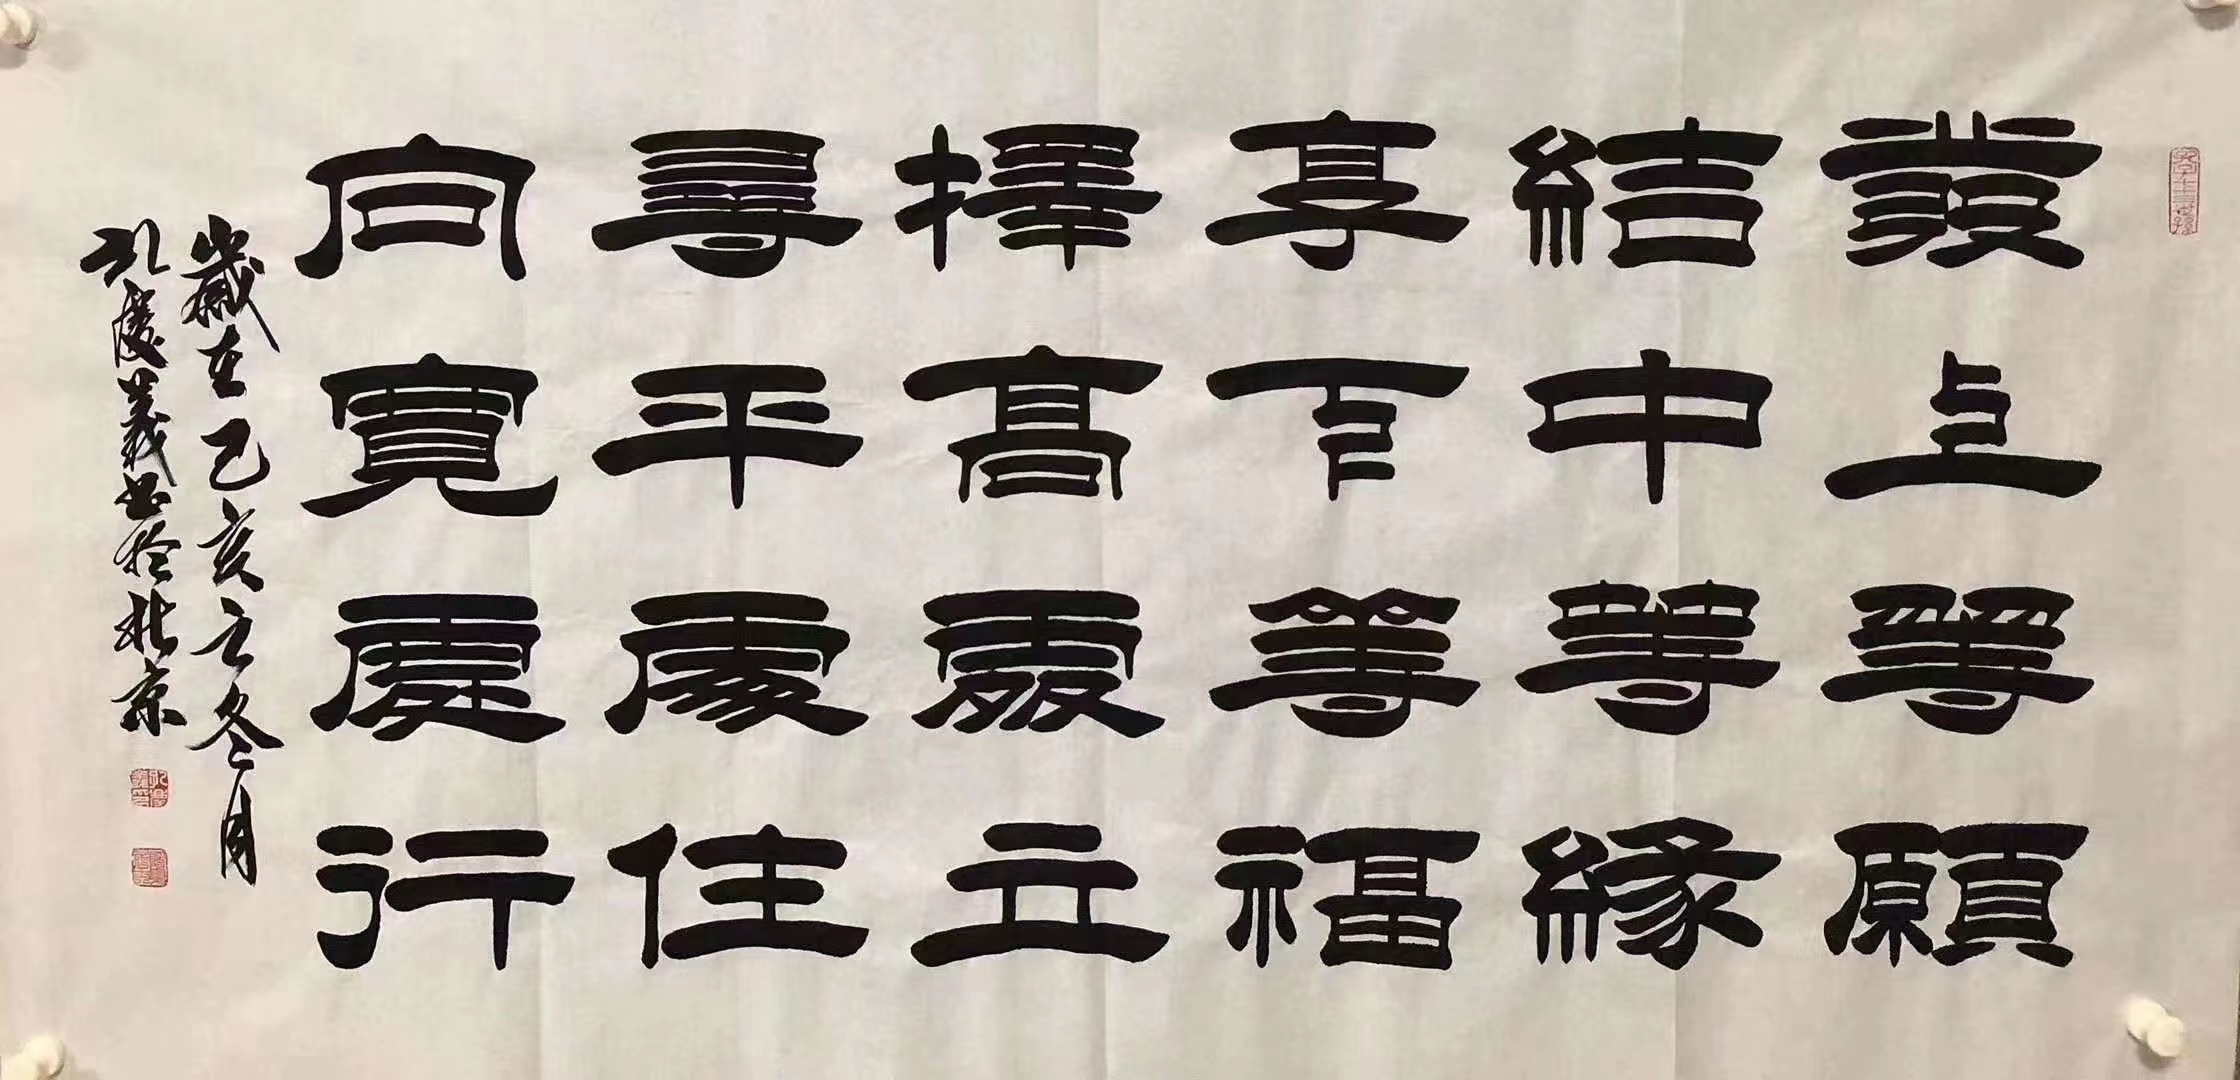 發上等願
結中等緣
享下等福
擇高處立
尋平處住
向寬處行
歲在己亥之冬月
孔慶義書於北京